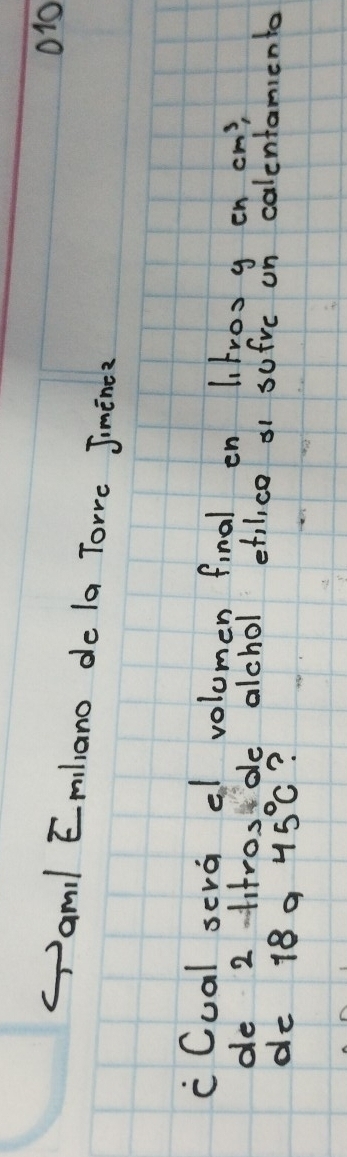 010
Yamil Emiliano de la Torre Jiménez
¿Cual será el volumen final en litros y en cm³,
de 2 litros de alchol etilico si sufre un calentamiento
de 18 a 45°C?